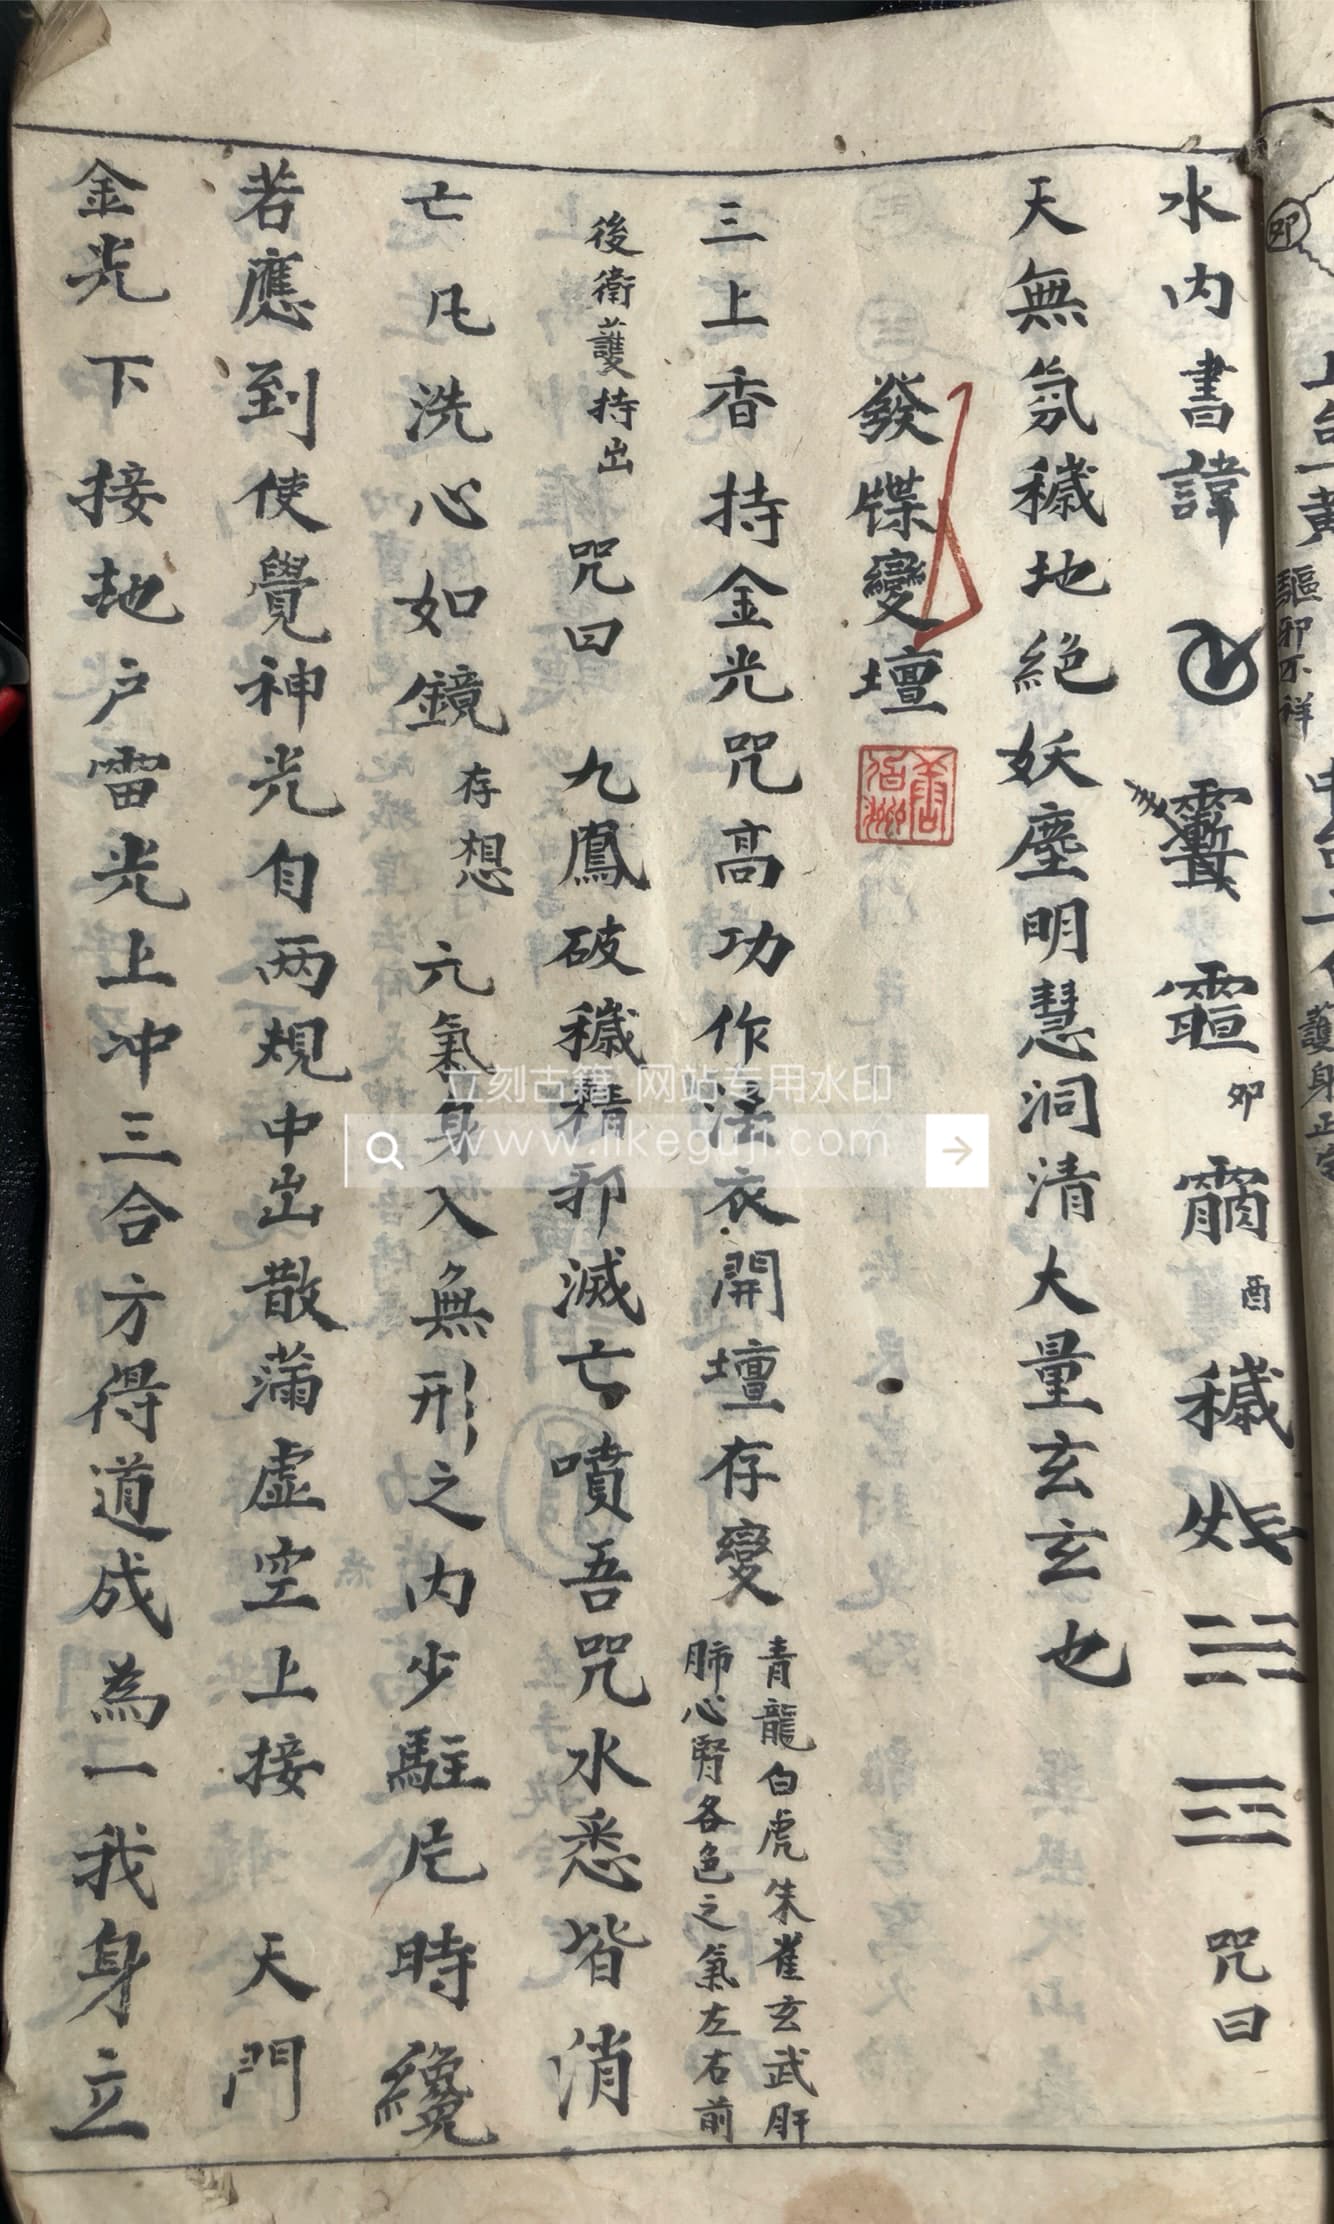 水內書諱 卯 酉 穢 咒曰
天無氛穢地絕妖塵明慧洞清大量玄玄也
發牒變壇
三上香持金光咒高功作法衣開壇存變
青龍白虎朱雀玄武肝
肺心腎各色之氣左右前
後衛護持出
咒曰 九鳳破穢精邪滅亡噴吾咒水悉皆消
亡凡洗心如鏡 存想 元氣身入無形之內少駐片時纔
若應到使覺神光自两規中出散滿虛空上接 天門
金光下接地户雷光上冲三合方得道成為一我身立
上台一黃
驅邪不祥
護身正
卯
立刻古籍 网站专用水印
www.likeguji.com